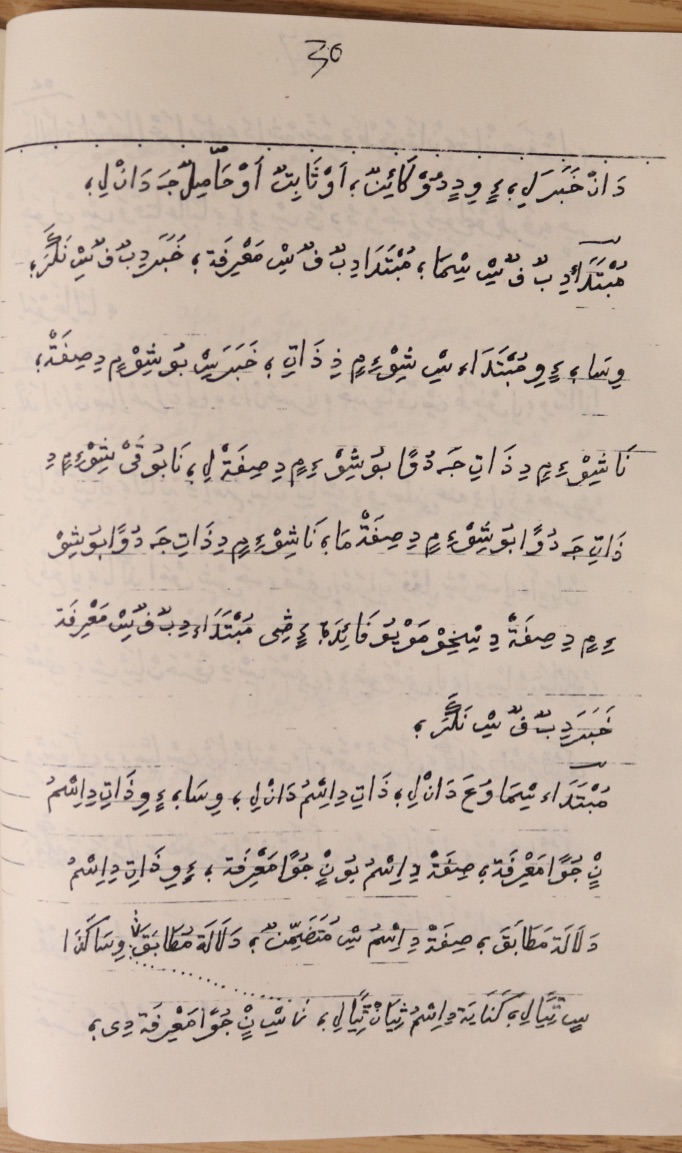 30
دَانْ خَبَرَ لِ، ءٍ وِدٍ دُوْ كَائِنٌ، اَوْ ثَابِتٌ اَوْ حَاصِلٌ جَ دَانْ لِ،
مُبْتَدَاء دِ بٌ فٌ سْ سِْمَا، مُبْتَدَا دِ بٌ فٌ سْ مَعْرِفَة، خَبَرَ دِ بٌ فٌ سْ نَكَرَ،
وِسَا، ءٍ وِ مُبْتَدَاء سْ شِوْءِمٍ دِ ذَاتِ، خَبَرَ سْ بُوشِوْمٍ دِ صِفَةْ،
نَا شِوْءِمٍ دِ ذَاتِ جَ دُوًّا بُوشِوْءِمٍ دِ صِفَةْ لِ، نَا بُوقُنْ شِوْءِمٍ دِ
ذَاتِ جَ دُوًّا بُوشِوْءِمٍ دِ صِفَةْ مَا، نَا شِوْءِمٍ دِ ذَاتِ جَ دُوًّا بُوشِوْ
ءِمٍ دِ صِفَةْ دِ سِْخِوْ مَوْ يُو فَائِدَة، ءٍ ضِى مُبْتَدَاء دِ بٌ فٌ سْ مَعْرِفَة
خَبَرَ دِ بٌ فٌ سْ نَكَرَ،
مُبْتَدَاء سِْمَا وُعَ دَانْ لِ، ذَاتِ دِ اِسْمُ دَانْ لِ، وِسَا، ءٍ وِ ذَاتِ دِ اِسْمُ
نٍْ جُوًّا مَعْرِفَة، صِفَةْ دِ اِسْمُ بُونٍْ جُوًّا مَعْرِفَة، ءٍ وِ ذَاتِ دِ اِسْمُ
دَلَالَة مَطَابَقَ، صِفَةْ دِ اِسْمُ سْ مُتَضَمِّنٌ، دَلَالَة مُطَابَقَ وِسَا كَنَا
سٍ ثِيَا لِ، كَنَايَة دِ اِسْمُ ثِيَانْ ثِيَا لِ، نَا سْ نٍْ جُوًّا مَعْرِفَة دِى،